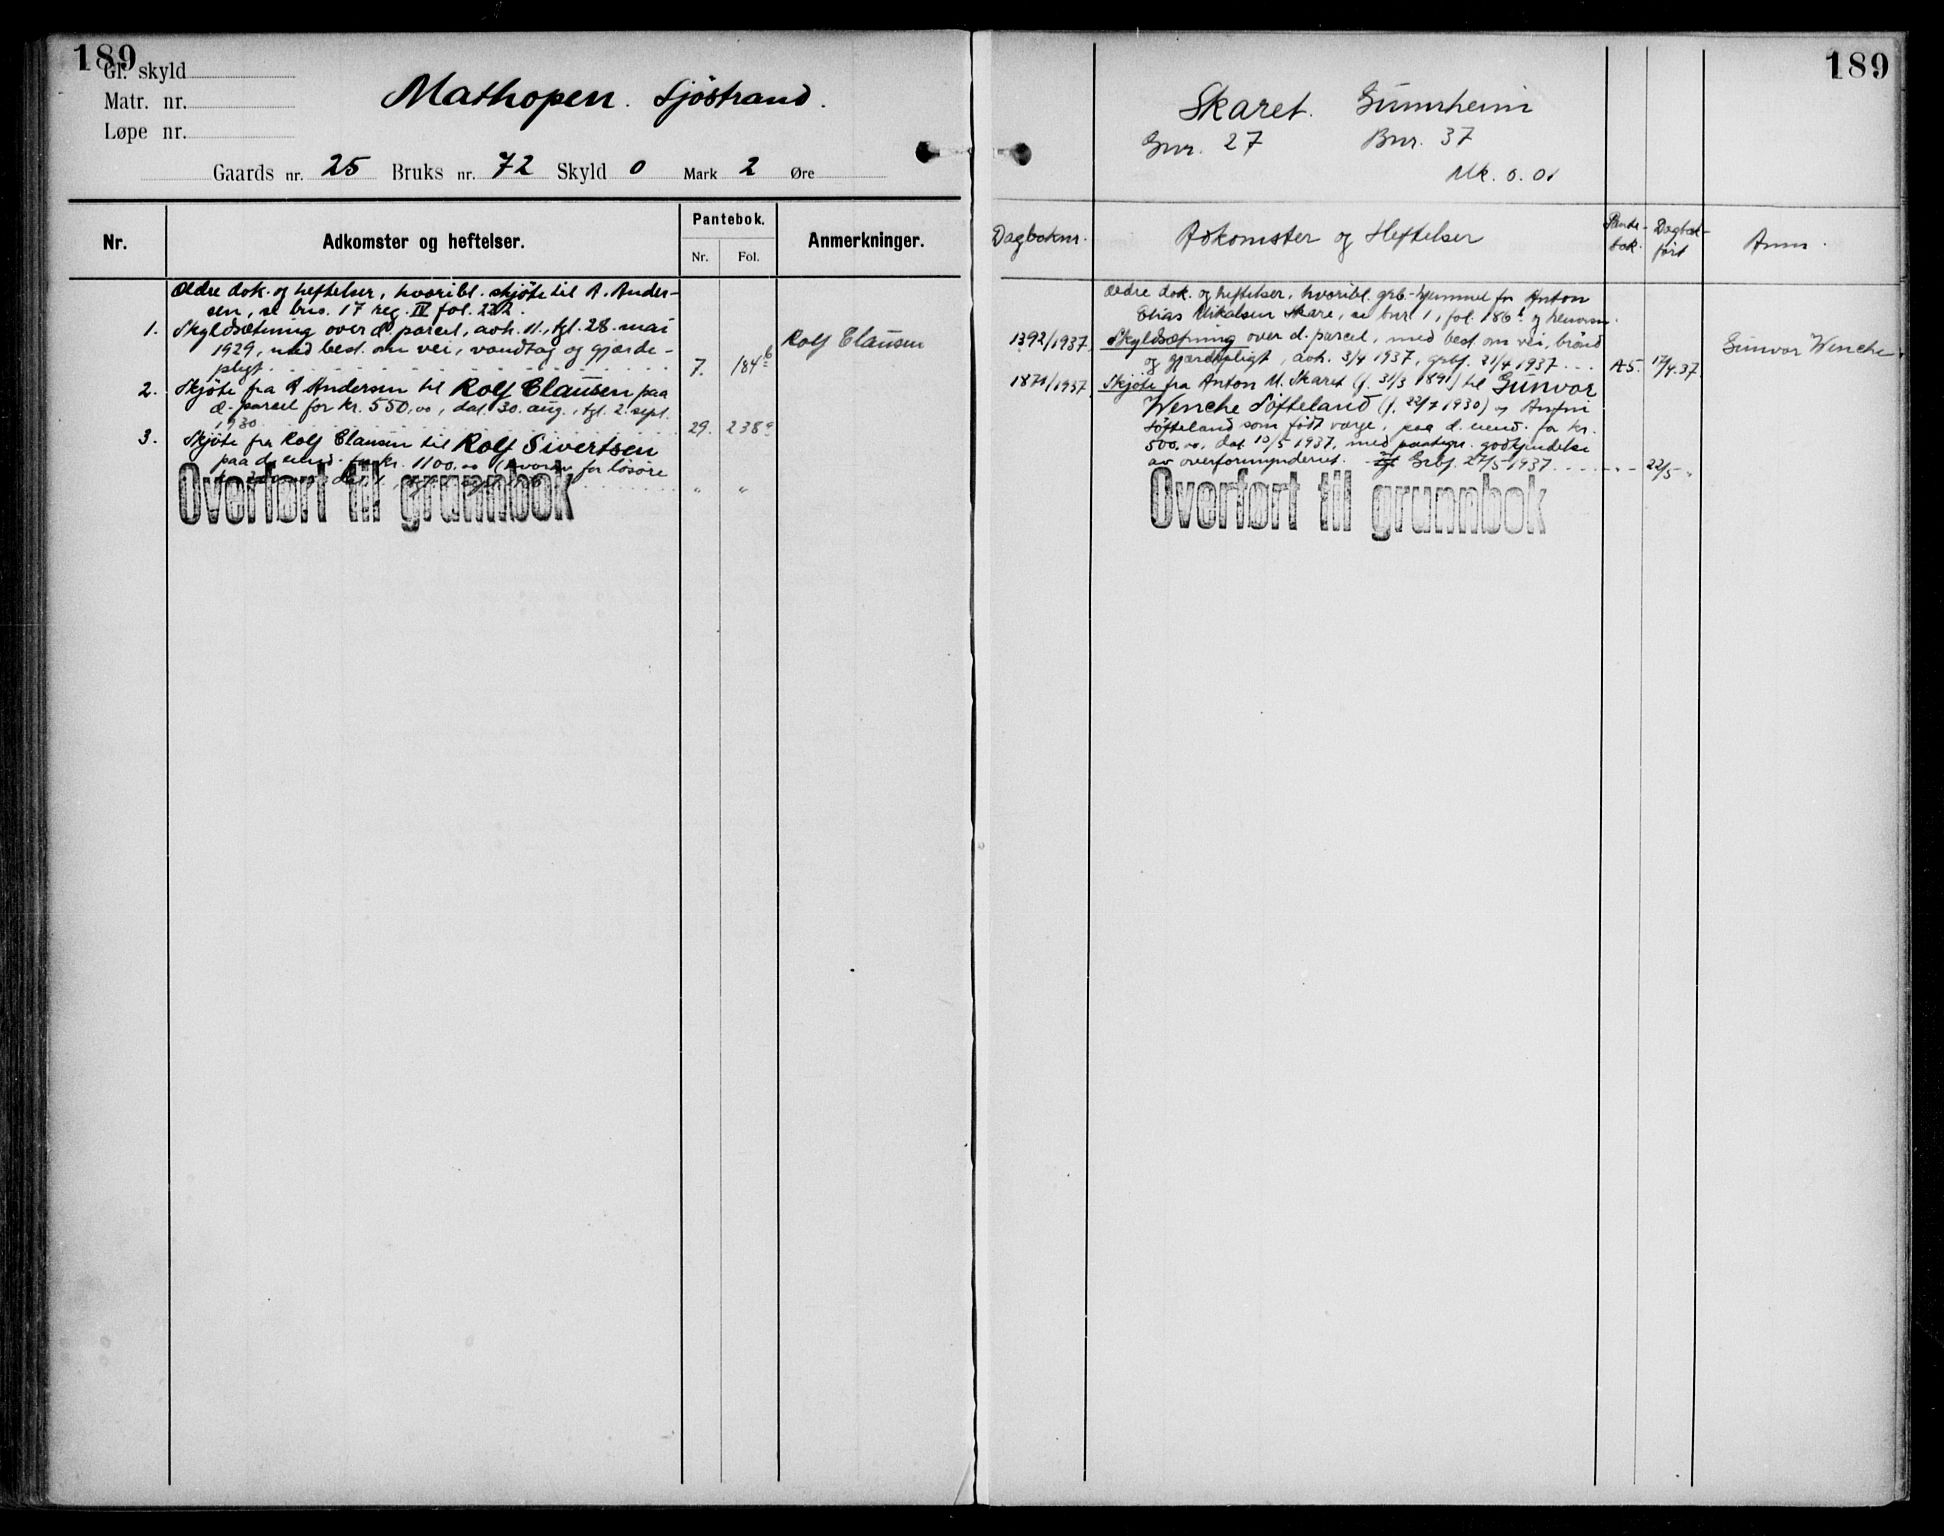 189
Gl. skyld
Matr. nr.
Løpe nr.
Mathopen. Sjöstrand.
Gaards nr. 25 Bruks nr. 72 Skyld 0 Mark 2 Øre
Nr.
Adkomster og heftelser.
Pantebok.
Nr. Fol.
Anmerkninger.
Ældre dok. og heftelser, hvoribl. skjöte til A. Ander-
sen, se bno. 17 reg. IV fol. 222.
1. Skyldsætning over d. parcel, avh. 11., tgl. 28. mai
1929, med best. om vei, vandtag og gjærde-
pligt. 7. 184 b
Rolf Clausen
2. Skjöte fra A Andersen til Rolf Clausen paa
d. parcel for kr. 550,00, dat. 30. aug., tgl. 2. sept.
1930 29. 238 a
3. Skjöte fra Rolf Clausen til Rolf Sivertsen
paa d. eiend. for kr. 1100,00 (hvorav for lösöre
" "
Overført til grunnbok
189
Skaret. Gunnheim
Gnr. 27 Bnr. 37
Mk. 0.01
Dagboknr.
Adkomster og Heftelser
Pante-
bok.
Dagbok-
ført
Anm.
Ældre dok. og heftelser, hvoribl. grb-hjemmel for Anton
Elias Mikalsen Skare, se bnr 1, fol. 186 b og henvisn.
1392/1937. Skyldsætning over d. parcel, med best om vei, brönd
og gjærdepligt, avh. 3/4 1937, grbf. 21/4 1937 A5. 17/4.37.
Gunvor Wenche
1871/1937 Skjöte fra Anton M. Skaret (f. 31/3 1891) til Gunvor
Wenche Söfteland (f. 22/7 1930) og
Söfteland som født værge, paa d. eiend. for kr.
500,00, dat. 10/5 1937, med paategn. godkjendelse
av overformynderiet. Grbf. 27/5 1937 " 22/5- "
Overført til grunnbok